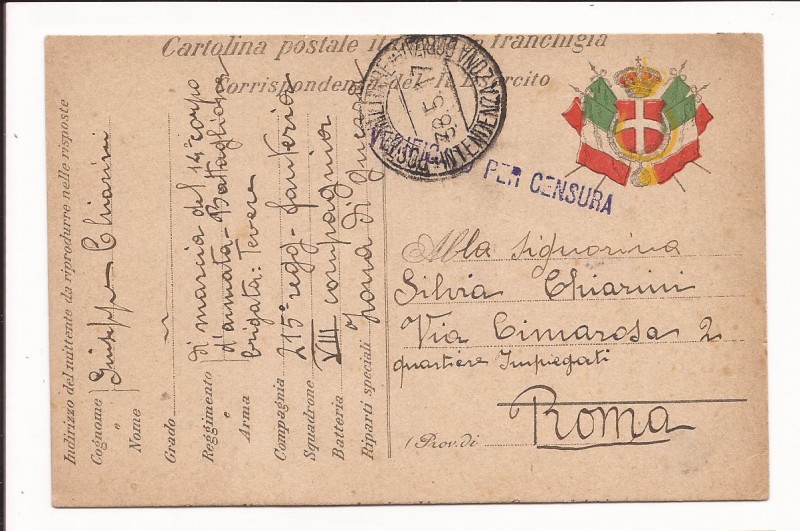 Cartolina postale in franchigia
Corrispondenza del R. Esercito
POSTA MILITARE
INTENDENZA ZONA
28.5.17
VERIFICATO PER CENSURA
Alla Signorina
Silvia Chiarini
Via Cimarosa 2
quartiere Impiegati
Roma
(Prov. di
Indirizzo del mittente da riprodurre nelle risposte
Cognome Giuseppe Chiarini
e
Nome
Grado
di marcia del 14° corpo
Reggimento d'armata - Battaglione
e
Arma brigata: Tevere
Compagnia 215° regg - fanteria
Squadrone
Batteria VIII compagnia
Riparti speciali Zona di guerra